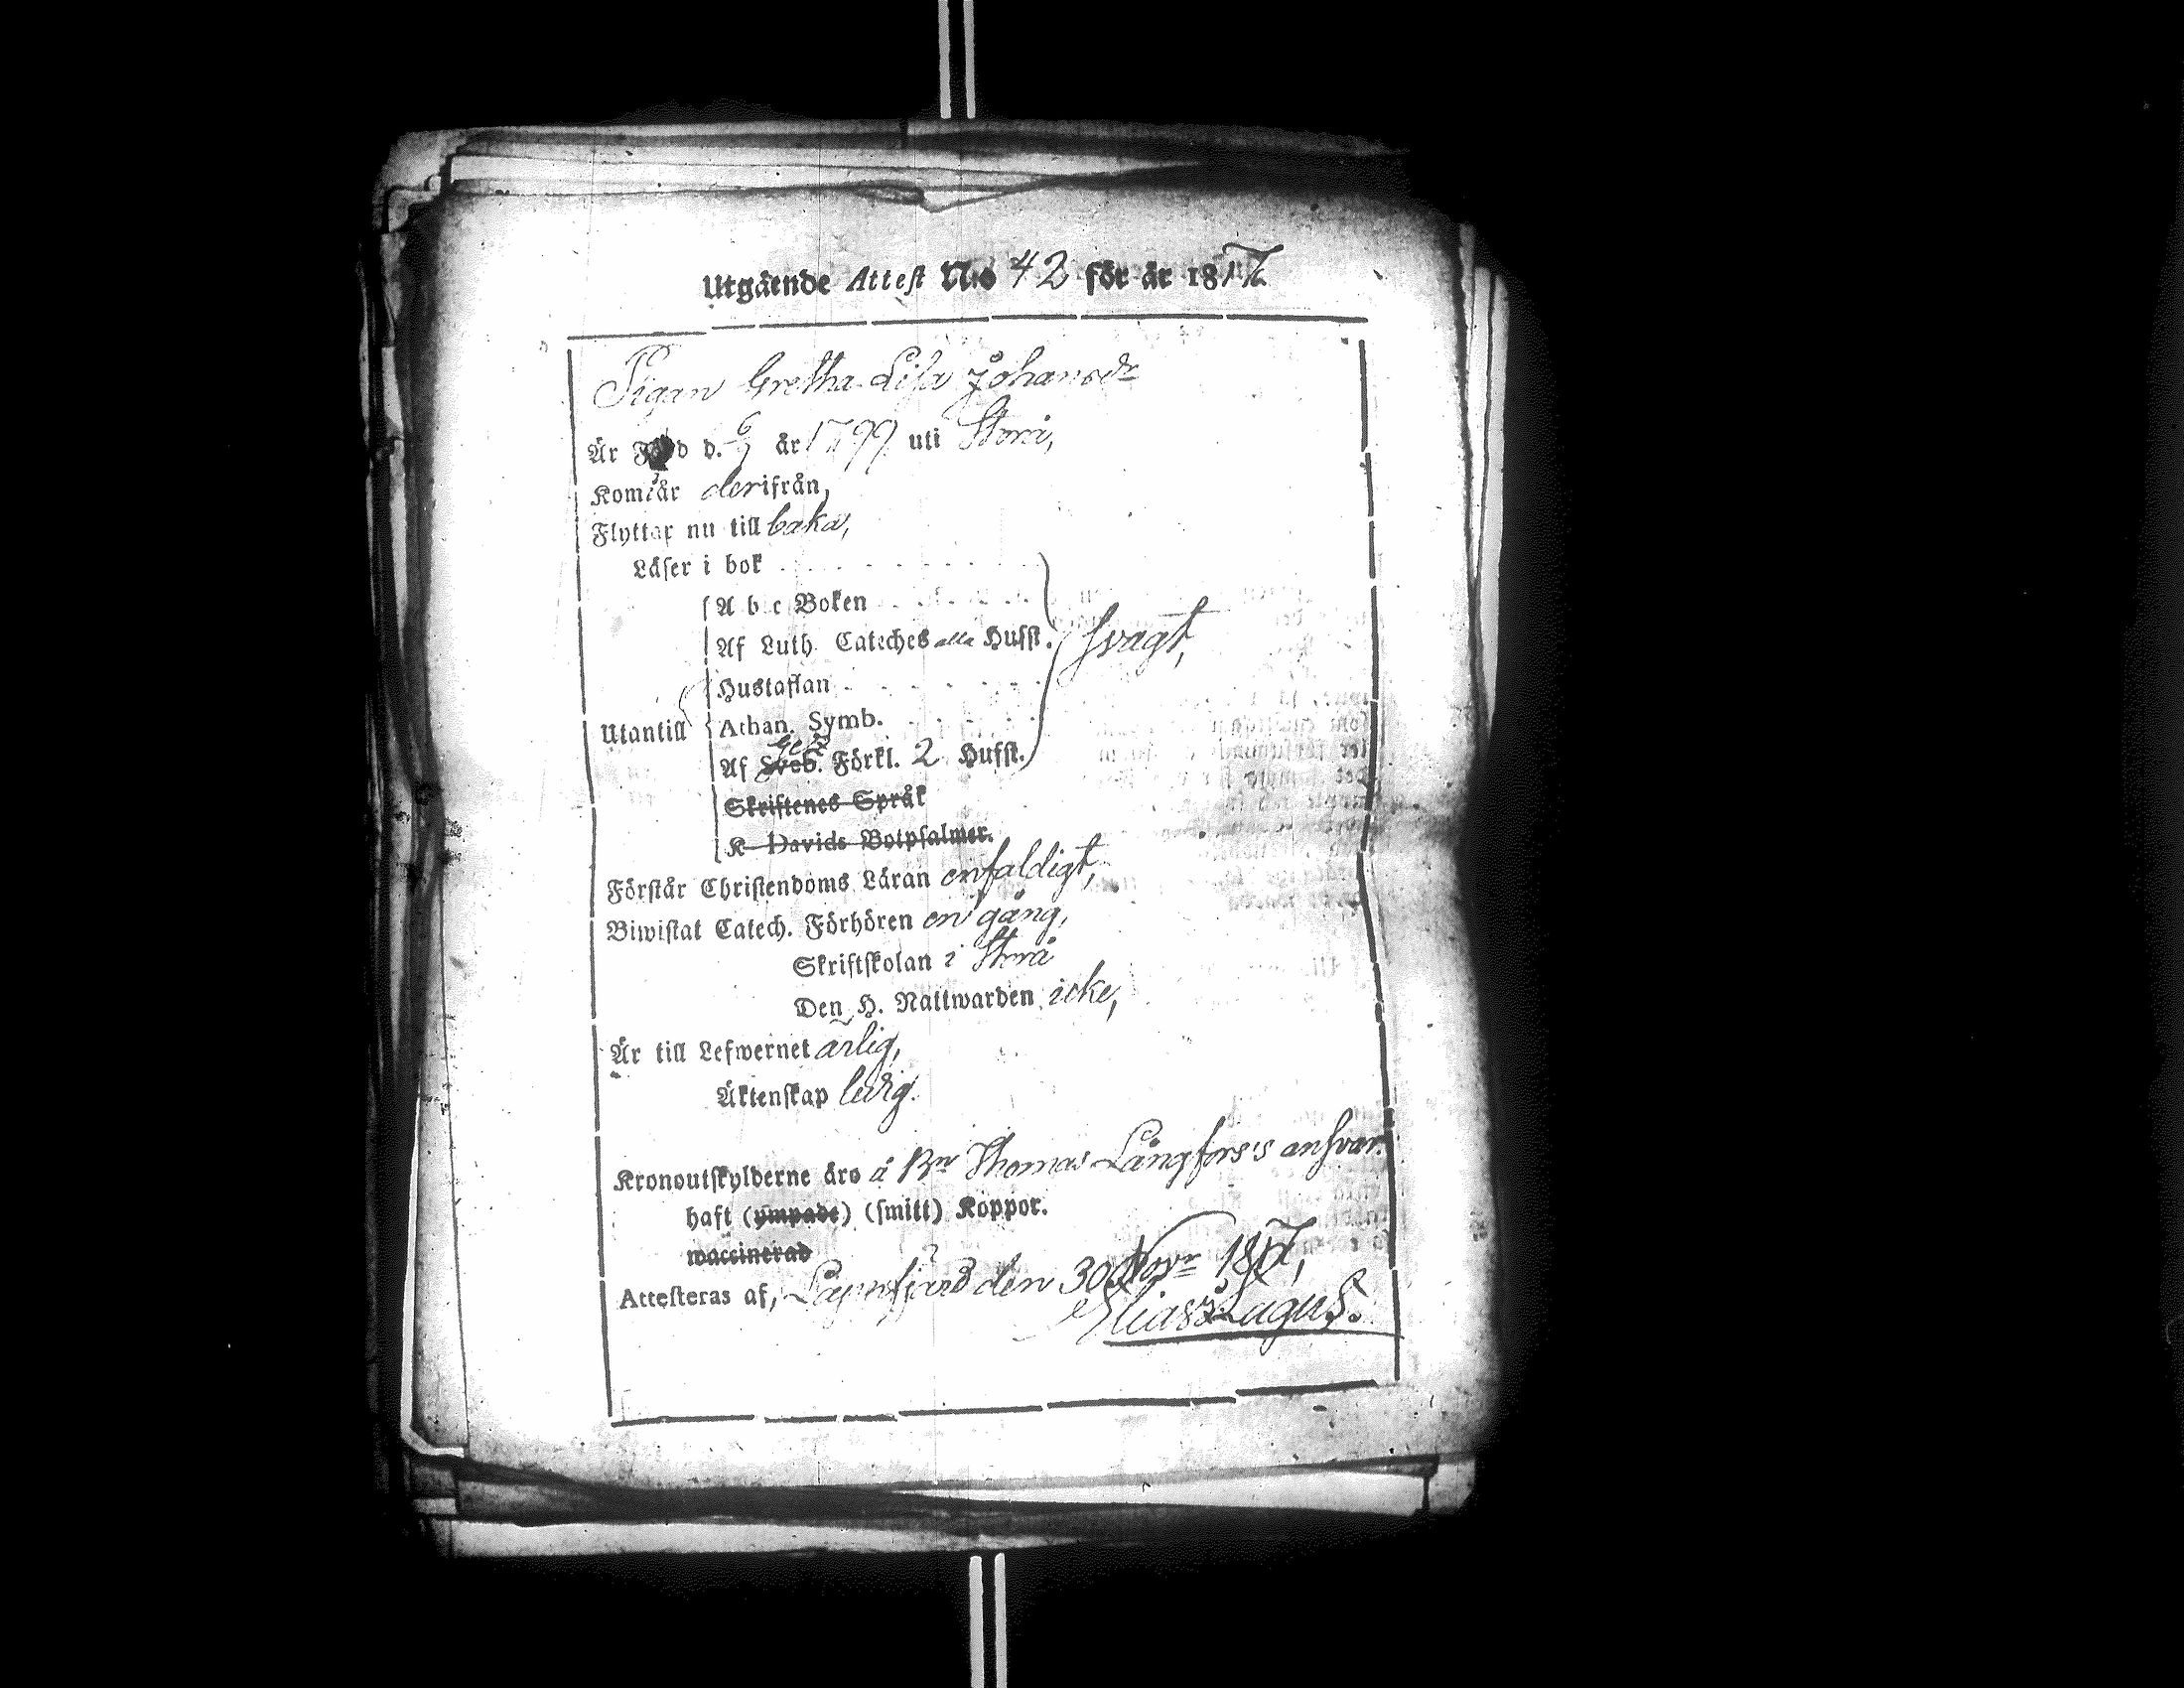 Utgående Attest No 42 för år 1817.
Pigan Gretha Lisa Johansdr
Är Född d. 6/9 år 1799 uti Storå,
Kom i år derifrån,
Flyttar nu till baka,
Läser i bok
A b c Boken
Af Luth. Cateches alla Hufst. svagt,
Hustaflan
Utantill
Athan. Symb.
Af Sveb. Förkl. 2 Hufst.
Skriftenes Språk
K Davids Botpsalmer.
Förstår Christendoms Läran enfaldigt,
Biwistat Catech. Förhören en gång,
Skriftskolan i Storå
Den H. Nattwarden icke,
Är till Lefwernet ärlig,
Äktenskap ledig.
Kronoutskylderne äro å Bn Thomas Långfors's ansvar.
haft (ympade) (smitt) Koppor.
waccinerad
Attesteras af, Lappfjärd den 30 Novr 1817,
Elias Lagus.